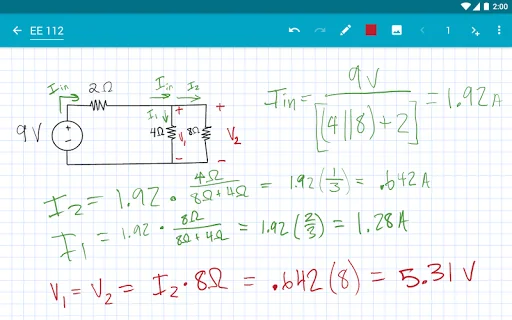 2:00
EE 112
1
Iin 2Ω Iin I2
I1 + +
9V + - 4Ω V1 8Ω V2
- -
Iin = 9V / [(4||8)+2] = 1.92A
I2 = 1.92 · 4Ω / 8Ω+4Ω = 1.92(1/3) = .642A
I1 = 1.92 · 8Ω / 8Ω+4Ω = 1.92(2/3) = 1.28A
V1 = V2 = I2 · 8Ω = .642(8) = 5.31 V